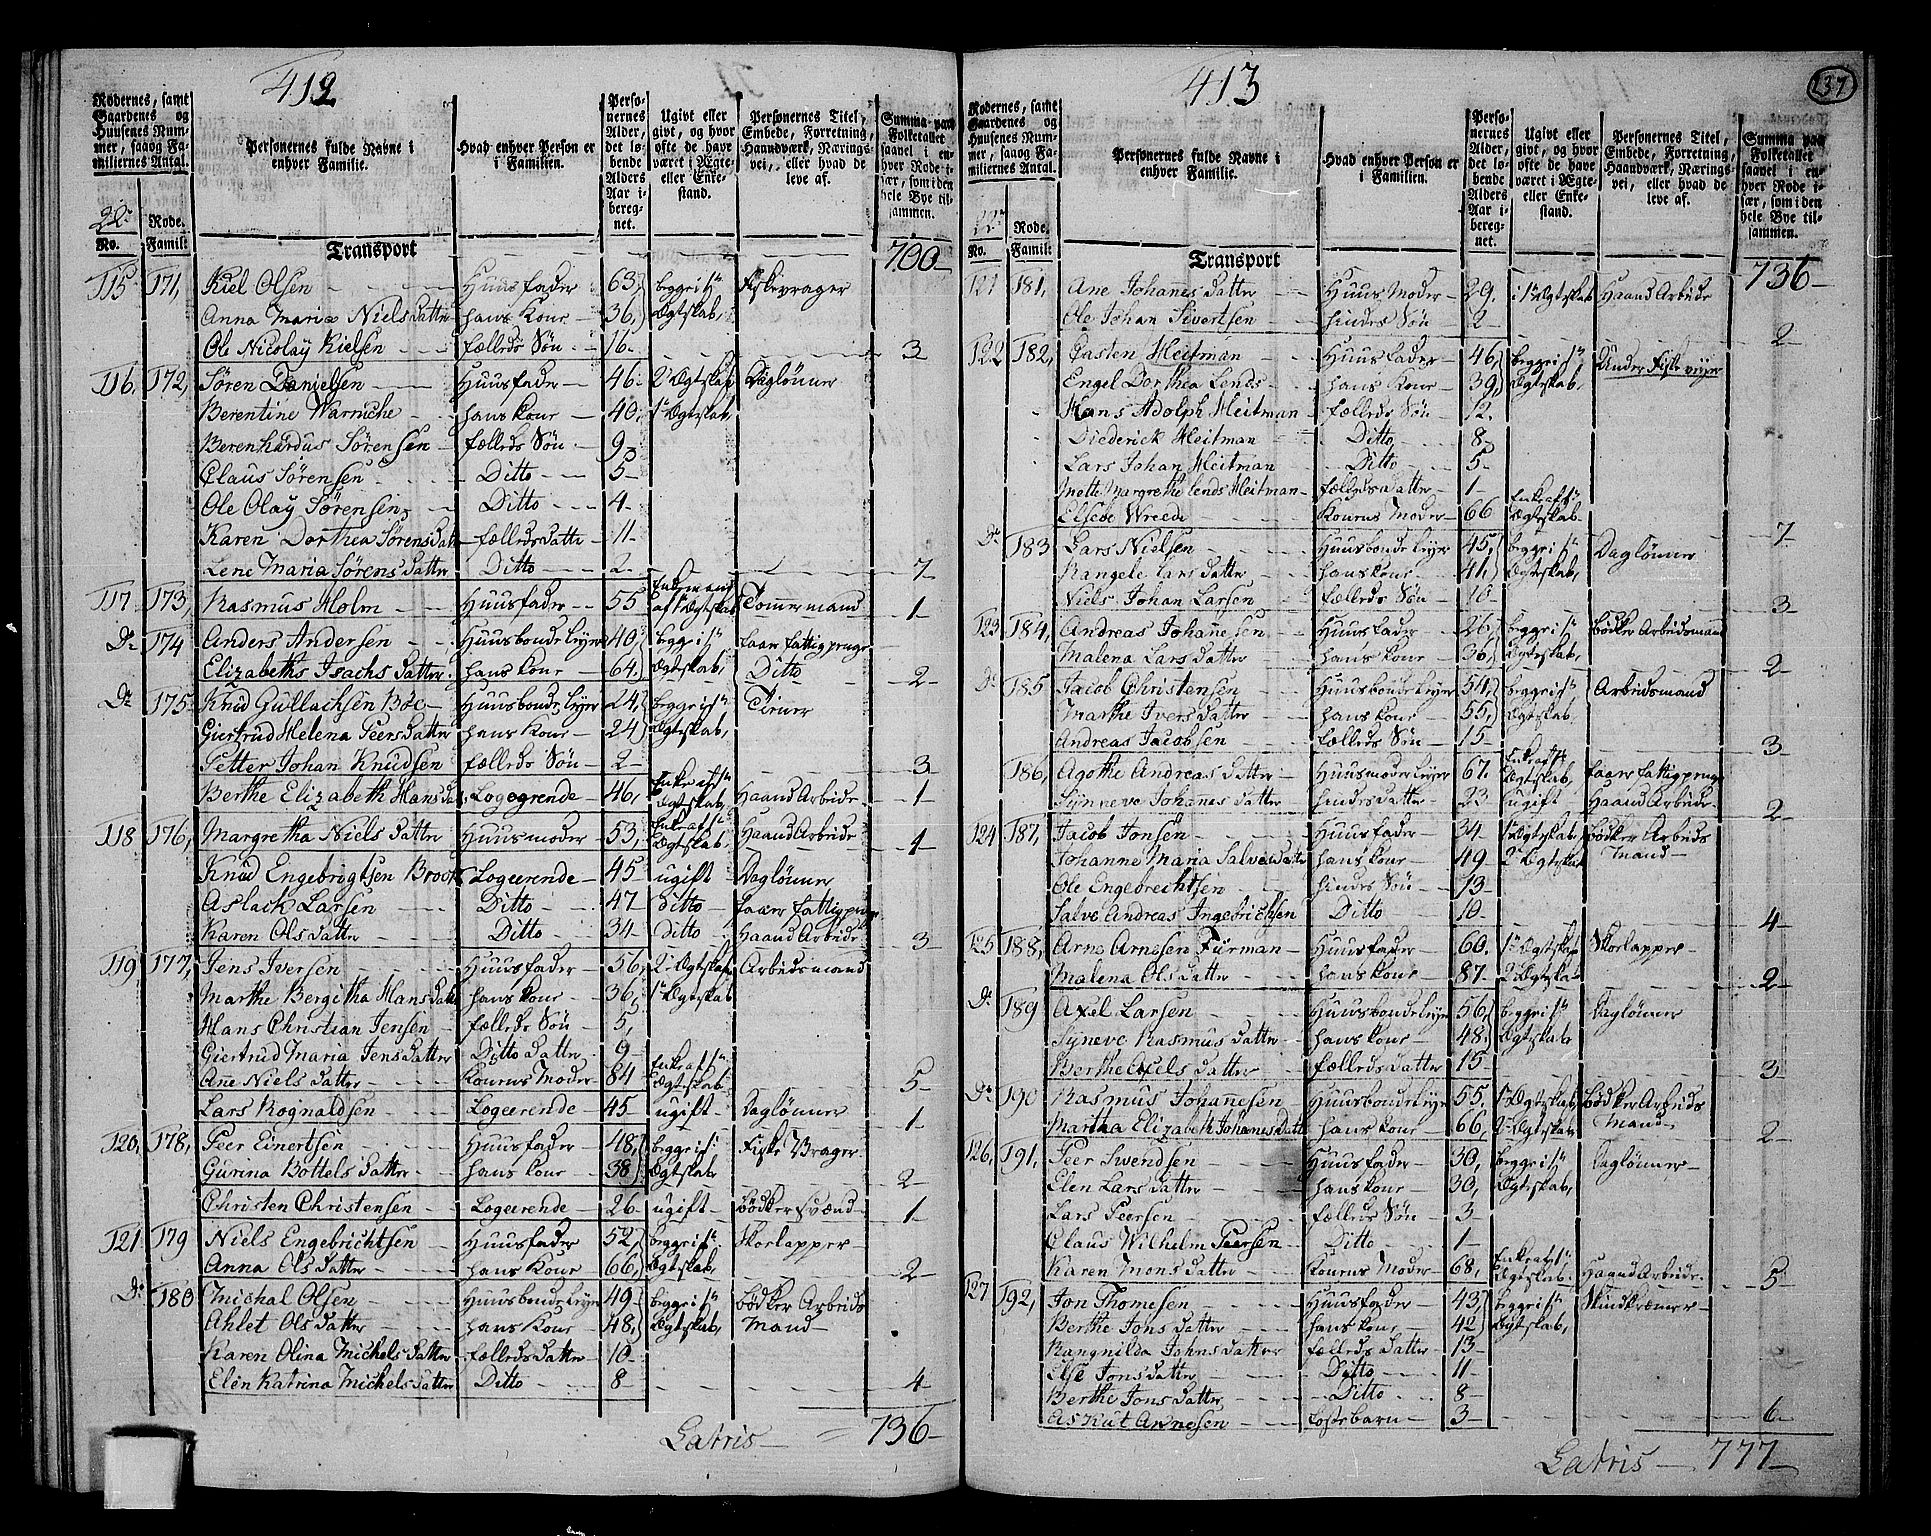 412
Rodernes, samt Gaardenes og Huusenes Nummer, saaog Familiernes Antal.
Personernes fulde Navne i enhver Familie.
Hvad enhver Person er i Familien.
Personernes Alder, det løbende Alders Aar iberegnet.
Ugivt eller givt, og hvor ofte de have været i Ægte- eller Enkestand.
Personernes Titel, Embede, Forretning, Haandværk, Næringsvei, eller hvad de leve af.
Summa paa Folketallet saavel i enhver Rode især, som i den hele Bye tilsammen.
22de Rode.
No. Famil:
Transport 700
115 171, Kiel Olsen Huusfader 63, begge i 1te Ægteskab, Fiskevrager
Anna Maria Nielsdatter hans Kone 36,
Ole Nicolay Kielsen fælleds Søn 16 3
116, 172, Søren Danielsen Huusfader 46 2 Ægteskab Daglønner
Berentine Warniche hans kone 40, 1te Ægteskab
Berenhardus Sørensen fælleds Søn 9
Claus Sørensen Ditto 5
Ole Olay Sørensen Ditto 4
Karen Dorthea Sørensdatter fælledsdatter 11
Lene Maria Sørensdatter Ditto 2 7
117 173, Rasmus Holm Huusfader 55 Enkemand af 1te Ægteskab Tømmermand 1
Do 174 Anders Andersen Huusbonde leyer 40, begge i 1te Ægteskab, faaer fattigpenge
Elizabeths Isachsdatter hans kone 64 Ditto 2
Do 175 Knud Gullachsen Bøe Huusbonde leyer 24, begge i 1te Ægteskab, Tiener
Giertrud Helena Peersdatter hans Kone 24
Petter Johan Knudsen fælleds Søn 2 3
Berthe Elizabeth Hansda Logerende 46, Enke af 1te Ægteskab, Haand Arbeide 1
118 176, Margretha Nielsdatter Huusmoder 53, Enke af 1te Ægteskab Haand Arbeide 1
Knud Engebrigtsen Logeerende 45 ugift Daglønner
Aslack Larsen Ditto 47 Ditto faaer fattigpenge
Karen Olsdatter Ditto 34 Ditto Haand Arbeide 3
119 177, Jens Iversen Huusfader 56, 2 Ægteskab Arbeidsmand
Marthe Bergitha Hansdatter hans kone 36, 1te Ægteskab
Hans Christian Jensen fælleds Søn 5,
Giertrud Maria Jensdatter Ditto datter 9
Ane Nielsdatter Konens Moder 84 Enke af 1te Ægteskab 5
Lars Rognaldsen Logeerende 45 ugift Daglønner 1
120, 178, Peer Einertsen Huusfader 48, begge i 1te Ægteskab Fiske Vrager
Gurina Bottelsdatter hans kone 38 2
Christen Christensen Logeerende 26 ugift bødker svænd 1
121 179 Niels Engebrichtsen Huusfader 52, begge i 1te Ægteskab, Skorlapper
Anna Olsdatter hans Kone 66, 2
Do 180 Michal Olsen Huusbonde leyer 49 begge i 1te Ægteskab, bødker Arbeids Mand
Ahlet Olsdatter hans Kone 48,
Karen Olina Michelsdatter fælledsdatter 10
Elen Katrina Michelsdatter Ditto 8 4
Latris 736
413
237
Rodernes, samt Gaardenes og Huusenes Nummer, saaog Familiernes Antal.
Personernes fulde Navne i enhver Familie.
Hvad enhver Person er i Familien.
Personernes Alder, det løbende Alders Aar iberegnet.
Ugivt eller givt, og hvor ofte de have været i Ægte- eller Enkestand.
Personernes Titel, Embede, Forretning, Haandværk, Næringsvei, eller hvad de leve af.
Summa paa Folketallet saavel i enhver Rode især, som i den hele Bye tilsammen.
22de Rode.
No. Famil:
Transport 736
121 181, Ane Johanesdatter Huus Moder 29. i 1te Ægteskab Haand Arbeide
Ole Johan Sivertsen hindes Søn 2 2
122 182, Casten Heitman Huusfader 46, begge i 1te Ægteskab, Under Fiske veyer
Engel Dorthea Lends hans Kone 39,
Hans Adolph Heitman fælleds Søn 12
Diederick Heitman Ditto 8
Lars Johan Heitman Ditto 5
Mette Margrethe Lends Heitman fælledsdatter 1
Elsebe Wreede Konens Moder 66 Enke af 1te Ægteskab 7
Do 183 Lars Nielsen Huusbonde leyer 45, begge i 1te Ægteskab, Daglønner
Rangele Larsdatter hans kone 41,
Niels Johan Larsen fælleds Søn 10 3
123 184, Andreas Johanesen Huusfader 26, begge i 1te Ægteskab, bødker Arbeidsmand
Malena Larsdatter hans Kone 36, 2
Do 185 Jacob Christensen Huusbonde leyer 54, begge i 1te Ægteskab Arbeidsmand
Marthe Iversdatter hans kone 55,
Andreas Jacobsen fælleds Søn 15 3
186, Agothe Andreasdatter Huusmoder leyer 67. Enke af 1te Ægteskab, faaer fattigpenge
Synneve Johanesdatter hindes datter 23 ugift Haand Arbeide 2
124 187, Jacob Jonsen Huusfader 34 1te Ægteskab bødker Arbeids Mand
Johanne Maria Salvesdatter hans kone 49 2 Ægteskab
Ole Engebrechtsen hindes Søn 13
Salve Andreas Ingebrichsen Ditto 10 4
125 188, Arne Arnesen Furman Huusfader 60. 1te Ægteskab Skorlapper
Malena Olsdatter hans kone 87 2 Ægteskab 2
Do 189 Axel Larsen Huusbonde leyer 56, begge i 1te Ægteskab Daglønner
Syneve Rasmusdatter hans kone 48
Berthe Axelsdatter fælledsdatter 15 3
Do 190 Rasmus Johanesen Huusbonde leyer 55, 1te Ægteskab, bødker Arbeids Mand
Martha Elizabeth Johanesdatt hans kone 66, 2 Ægteskab 2
126, 191, Peer Swendsen Huusfader 30, begge i 1te Ægteskab, Daglønner
Elen Larsdatter hans kone 30,
Lars Peersen fælleds Søn 3
Claus Wilhelm Peersen Ditto 1
Karen Monsdatter Konens Moder 68, Enke af 1te Ægteskab Haand Arbeide 5
127 192, Jon Thomesen Huusfader 43, begge i 1te Ægteskab, Skindkræmer
Berthe Jonsdatter hans kone 42
Rangnilda Johnsdatter fælleds datter 13
Else Jonsdatter Ditto 11
Berthe Jonsdatter Ditto 8
Askut Arnesen fostebarn 3 6
Latris 777